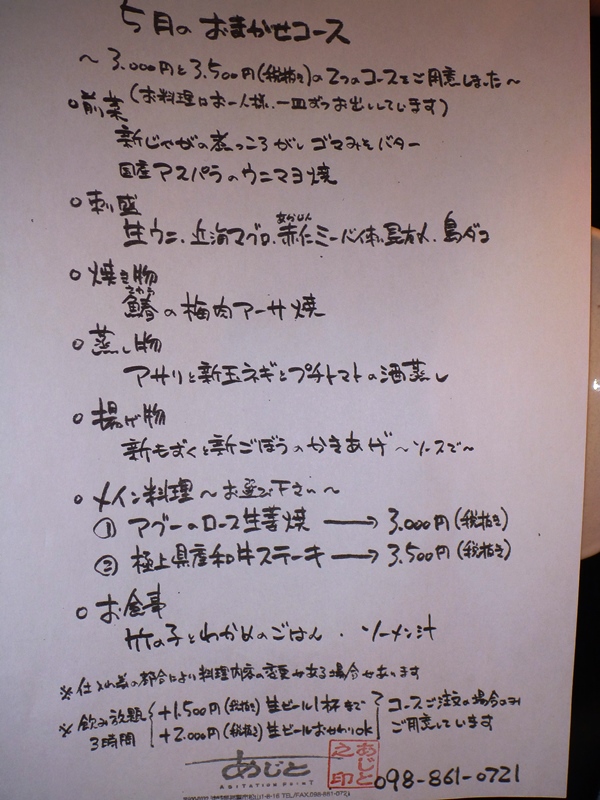 5月の おまかせコース
～3.000円と3.500円(税抜き)の2つのコースをご用意しました～
(お料理はお一人様、一皿ずつお出ししています)
○前菜
新じゃがの煮っころがし ゴマみそバター
国産アスパラのウニマヨ焼
○刺盛
生ウニ、近海マグロ、赤仁ミーバイ 島ダコ
あかじん
○焼き物
さわら
鰆の梅肉アーサ焼
○蒸し物
アサリと新玉ネギとプチトマトの酒蒸し
○揚げ物
新もずくと新ごぼうのかきあげ～ソースで～
○メイン料理～お選び下さい～
① アグーのロース生姜焼 → 3.000円(税抜き)
② 極上県産和牛ステーキ → 3.500円(税抜き)
○お食事
竹の子とわかめのごはん・ソーメン汁
※仕入れ等の都合により料理内容の変更がある場合があります
※飲み放題 3時間
+1.500円(税抜き)生ビール1杯まで
+2.000円(税抜き)生ビールおかわりok
コースご注文の場合のみ
ご用意しています
あじと
AGITATION POINT
あじと之印
098-861-0721
TEL/FAX.098-861-0721